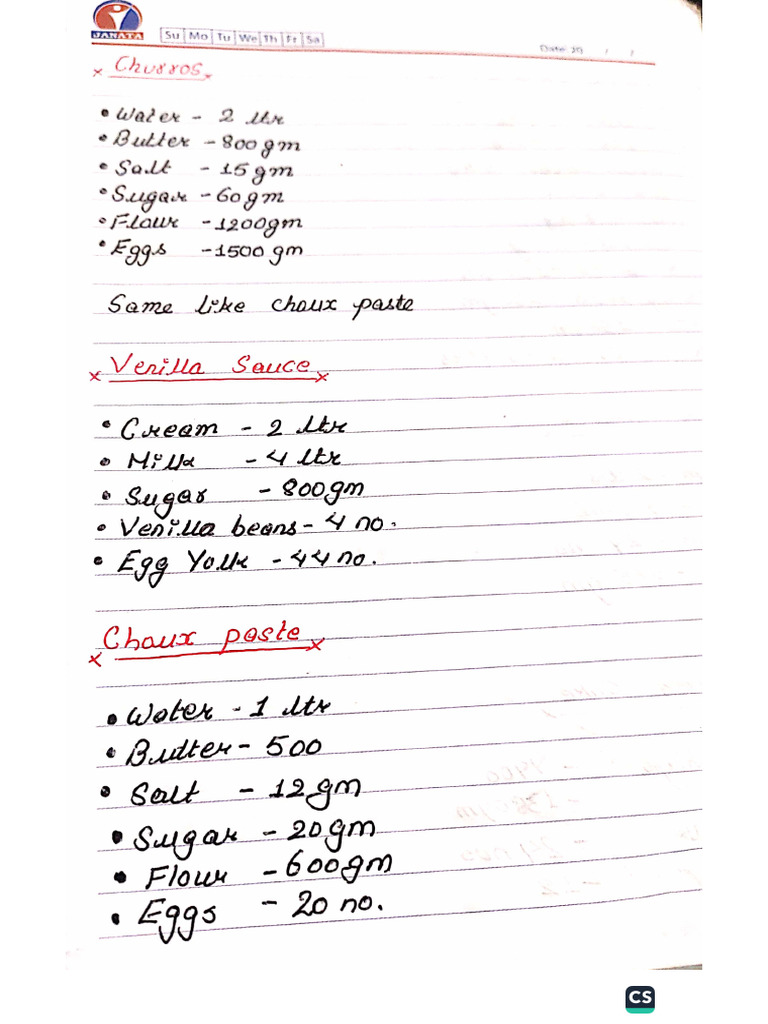 JANATA
Su Mo Tu We Th Fr Sa
Date: 20 / /
Churros
• Water - 2 ltr
• Butter - 800 gm
• Salt - 15 gm
• Sugar - 60 gm
• Flour - 1200gm
• Eggs - 1500 gm
Same like choux paste
Venilla Sauce
• Cream - 2 ltr
• Milk - 4 ltr
• Sugar - 800gm
• Venilla beans - 4 no.
• Egg Yolk - 44 no.
Choux paste
• Water - 1 ltr
• Butter - 500
• Salt - 12 gm
• Sugar - 20 gm
• Flour - 600gm
• Eggs - 20 no.
CS